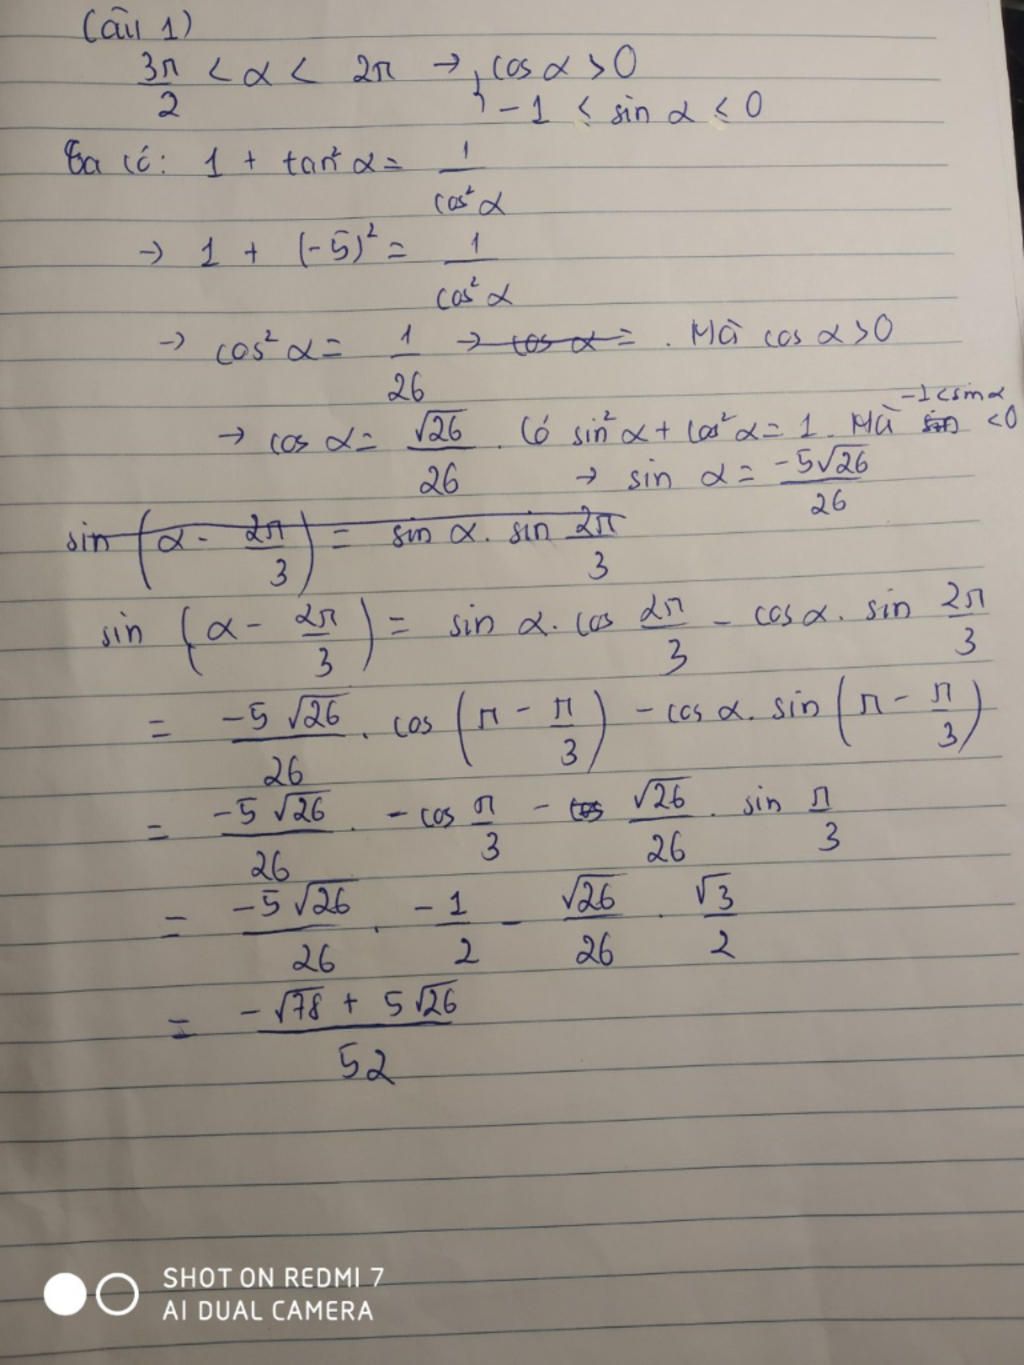 Câu 1)
3π/2 < α < 2π → , cos α > 0
-1 ≤ sin α ≤ 0
Ta có: 1 + tan² α = 1/cos² α
→ 1 + (-5)² = 1/cos² α
→ cos² α = 1/26 → cos α = . Mà cos α > 0
-1 < sin α
→ cos α = √26/26 . Có sin² α + cos² α = 1. Mà sin < 0
→ sin α = -5√26/26
sin (α - 2π/3) = sin α. sin 2π/3
sin (α - 2π/3) = sin α. cos 2π/3 - cos α. sin 2π/3
= -5√26/26 . cos (π - π/3) - cos α. sin (π - π/3)
= -5√26/26 . - cos π/3 - cos √26/26 . sin π/3
= -5√26/26 . -1/2 - √26/26 . √3/2
= -√78 + 5√26/52
SHOT ON REDMI 7
AI DUAL CAMERA